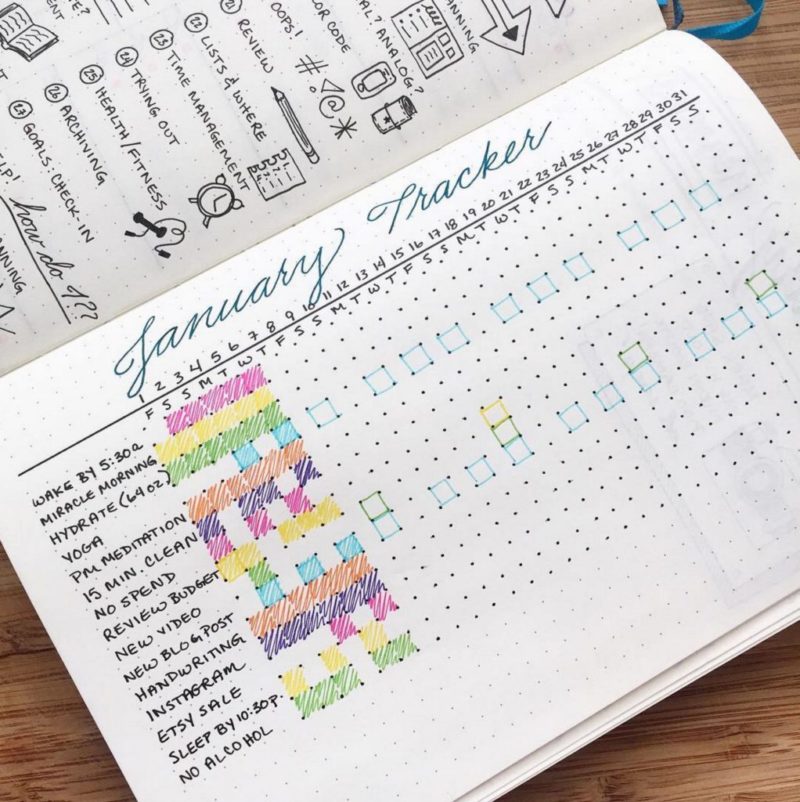 NNING
AL? ANALOG?
LOR CODE
OOPS!
#!@*
21 REVIEW
22 LISTS & WHERE
23 TIME MANAGEMENT
24 TRYING OUT
25 HEALTH/FITNESS
26 ARCHIVING
27 GOALS: CHECK-IN
how do I??
January Tracker
1 2 3 4 5 6 7 8 9 10 11 12 13 14 15 16 17 18 19 20 21 22 23 24 25 26 27 28 29 30 31
F S S M T W T F S S M T W T F S S M T W T F S S M T W T F S S
WAKE BY 5:30a
MIRACLE MORNING
HYDRATE (64 oz)
YOGA
PM MEDITATION
15 MIN. CLEAN
NO SPEND
REVIEW BUDGET
NEW VIDEO
NEW BLOG POST
HANDWRITING
INSTAGRAM
ETSY SALE
SLEEP BY 10:30p
NO ALCOHOL